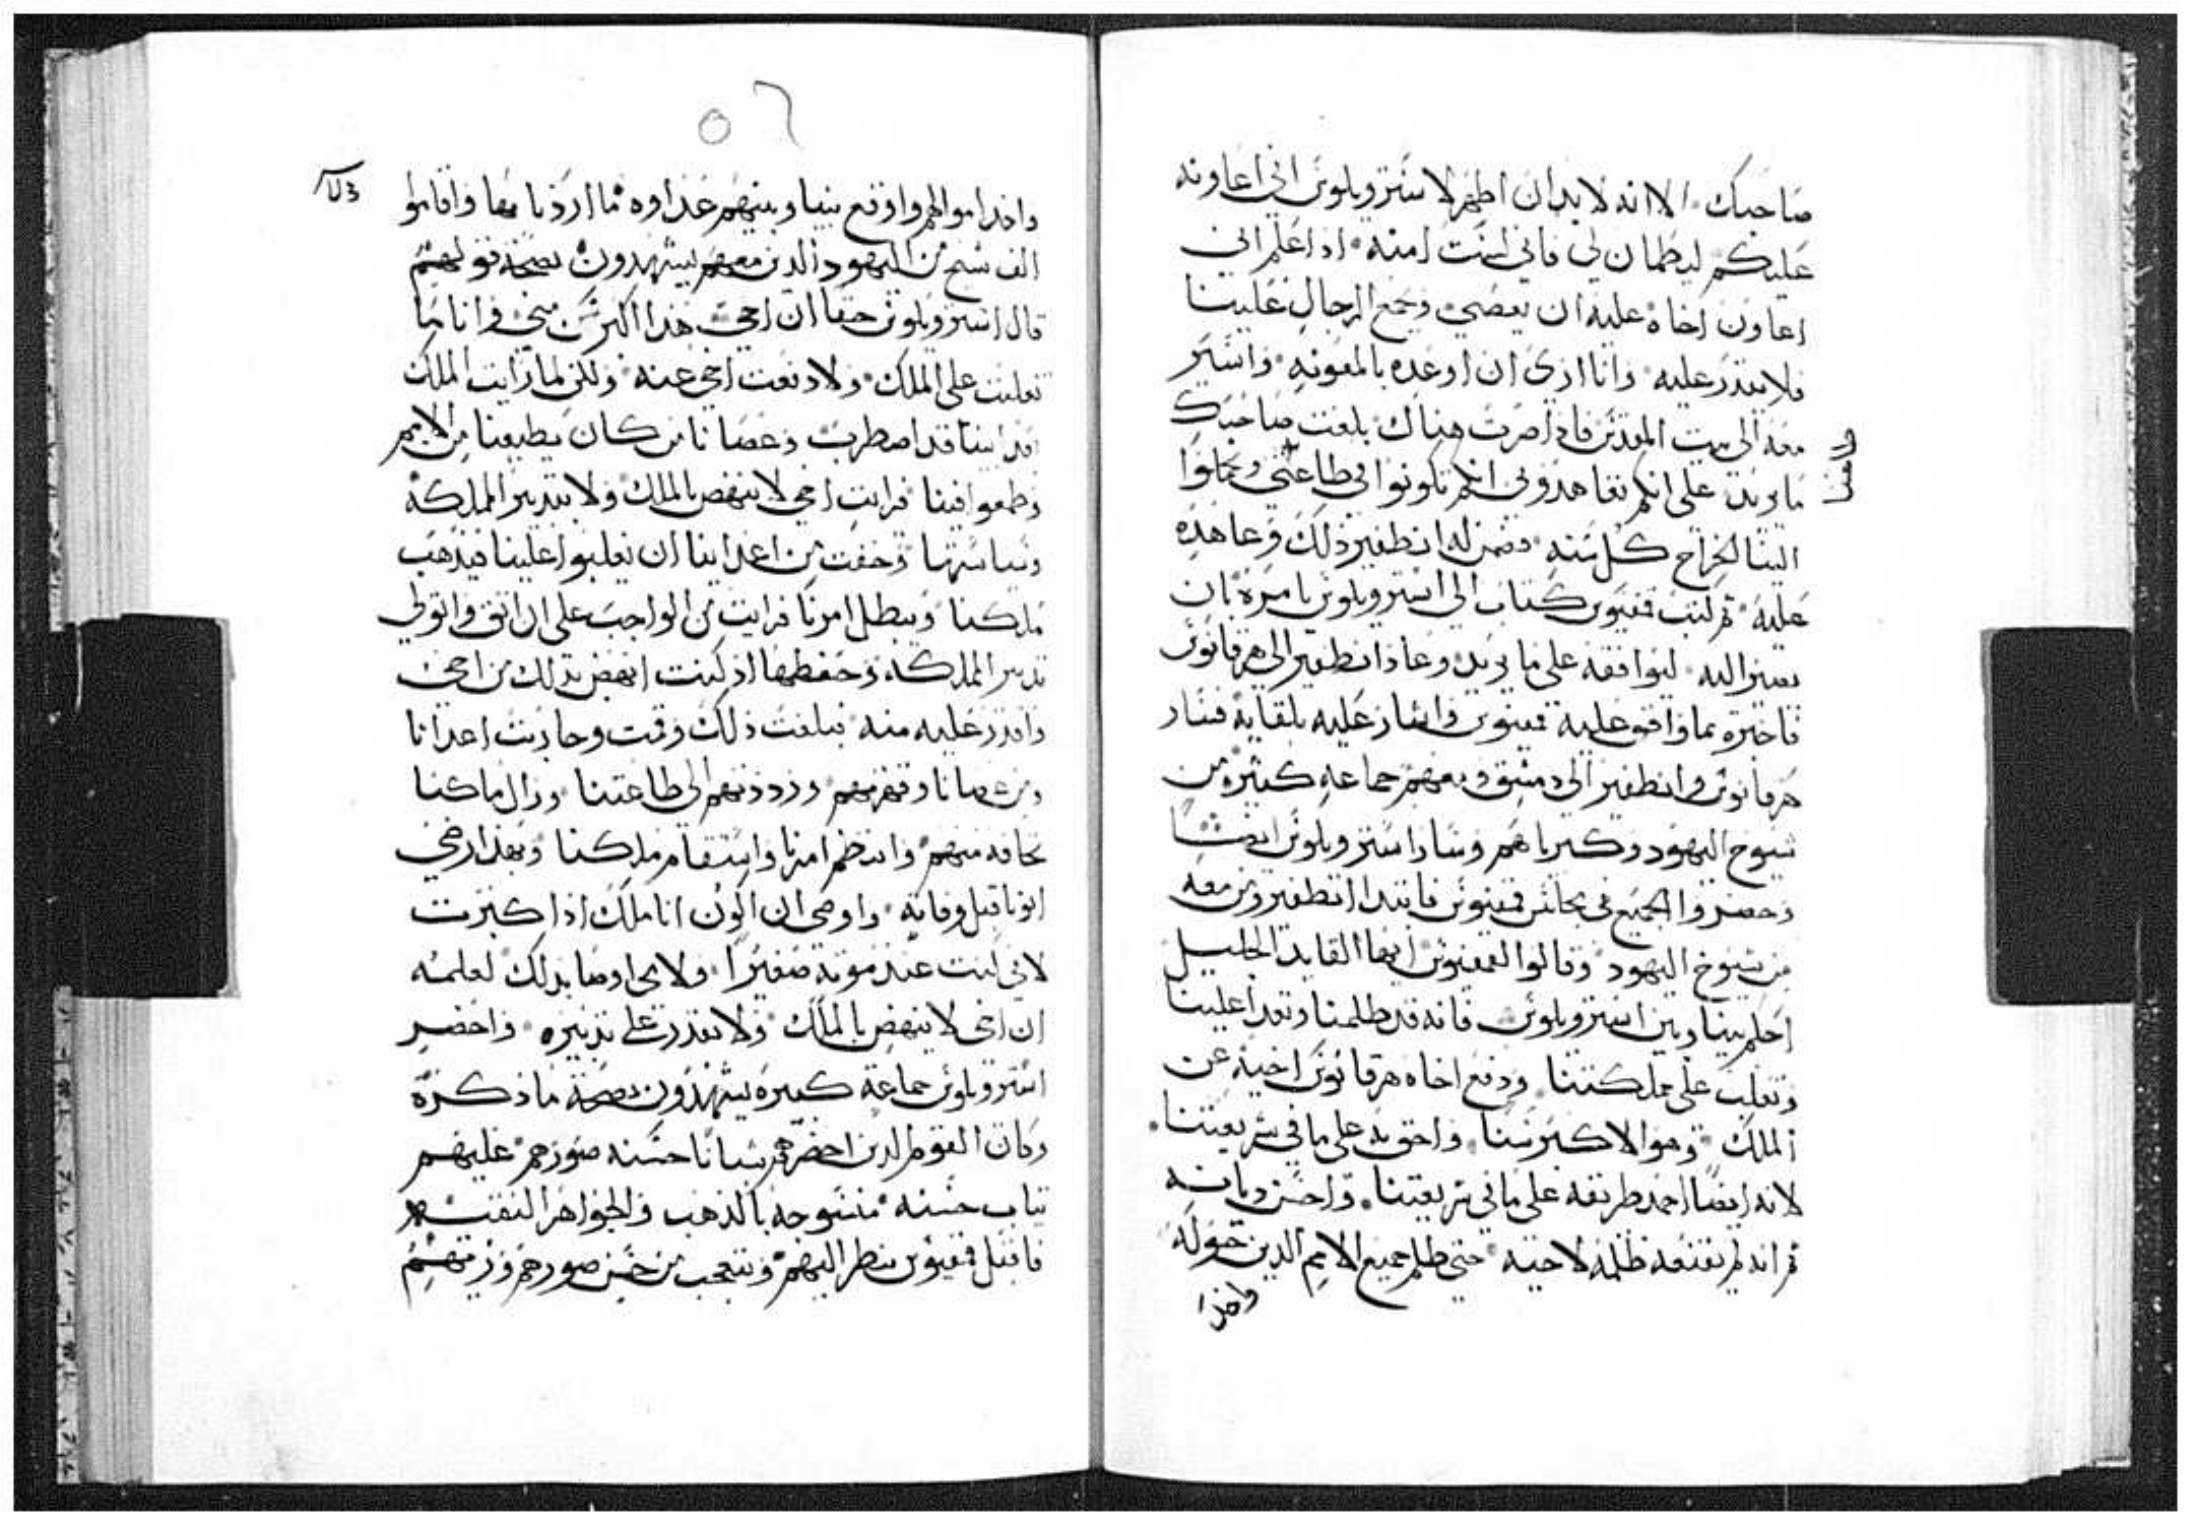 صاحبك الا انه لا بد ان اظهر لاستروبلوس اني اعاونه
عليكم ليطمان لي فاني لست امنه اذا علم اني
اعاون اخاه عليه ان يعصي وجمع الرجال علينا
فلا يقدر عليه وانا اري ان اوعده بالمعونه واسير
معه الى بيت المقدس فاذا صرت هناك بلغت صاحبك
ما يريد على انكم تعاهدوني انكم تكونوا في طاعتي وتحملوا
الينا الخراج كل سنه فضمن له انطفير ذلك وعاهده
عليه ثم كتب فمنيوس كتاب الى استروبلوس يامره بان
يصير اليه ليوافقه على ما يريد وعاد انطفير الى هرقانوس
فاخبره بما وافق عليه فمنيوس واشار عليه بلقايه فسار
هرقانوس وانطفير الى دمشق ومعهم جماعه كثيره من
شيوخ اليهود وكبرياهم وسار استروبلوس ايضا
وحضروا الجميع في مجلس فمنيوس فابتدا انطفير ومن معه
من شيوخ اليهود وقالوا لفمنيوس ايها القايد الجليل
احكم بيننا وبين استروبلوس فانه قد ظلمنا وتعدا علينا
وتغلب على مملكتنا ودفع اخاه هرقانوس اخيه عن
الملك وهو الاكبر سنا واحق به على ما في شريعتنا
لانه ايضا احمد طريقه على ما في شريعتنا واحسن ديانه
ثم انه لم يقنعه ظلمه لاخيه حتى ظلم جميع الامم الدين حوله
واخدا
٥٦
واخد اموالهم واوقع بيننا وبينهم عداوه ما اردنا بها واقاموا
الف شيخ من اليهود الدين معهم يشهدون بصحة قولهم
قال استروبلوس حقا ان اخي هدا اكبر سن مني وانا ما
تغلبت على الملك ولا دفعت اخي عنه ولكن لما رايت الملك
قد اصطرب وعصانا من كان يطيعنا من الامم
وطمعوا فينا فرايت اخي لا ينهض بالملك ولا بتدبير المملكه
وسياستها وخفت من اعداينا ان يغلبوا علينا فيدهب
ملكنا ويبطل امرنا فرايت من الواجب على ان اتق واتولى
تدبير المملكه وحفظها اذ كنت انهض بدلك من اخي
واقدر عليه منه فبلغت ذلك وقت وحاربت اعدانا
ومن عصانا وقهرتهم ورددتهم الى طاعتنا وزال ما كنا
نخافه منهم وانتظم امرنا واستقام ملكنا وبعد ارضي
ابونا قبل وفاته واوصى ان اكون انا ملك اذا كبرت
لاني كنت عند موته صغيرا ولاجل اوصا بدلك لعلمه
ان اخي لا ينهض بالملك ولا يقدر على تدبيره واحضر
استروبلوس جماعة كبيره يشهدون بصحة ما ذكره
وكان القوم الدين احضرهم شبانا حسنه صورهم عليهم
تياب حسنه منسوجه بالدهب والجواهر النفيسه
فاقبل فمنيوس ينظر اليهم ويتعجب من حسن صورهم وزيهم